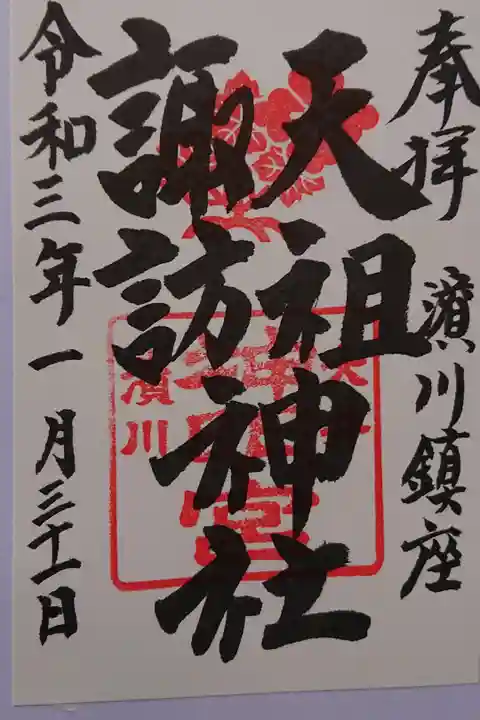 奉拝
濱川鎮座
天祖神社
諏訪
令和三年一月三十一日
濱川